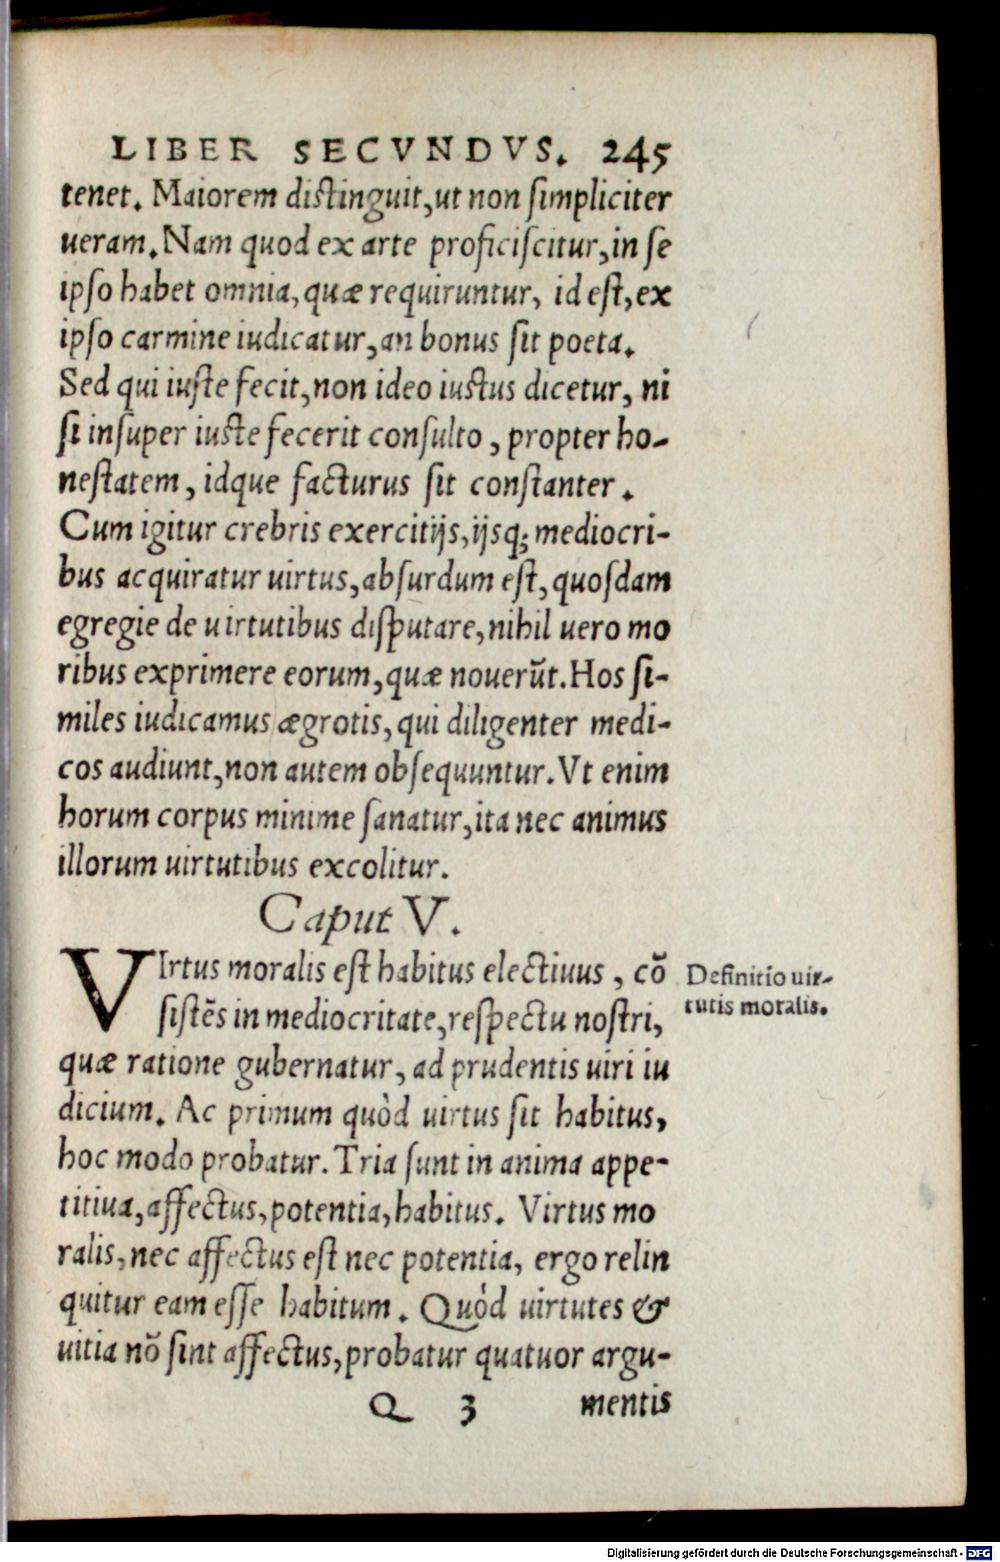 LIBER SECVNDVS. 245
tenet. Maiorem distinguit, ut non simpliciter
ueram. Nam quod ex arte proficiscitur, in se
ipso habet omnia, quæ requiruntur, id est, ex
ipso carmine iudicatur, an bonus sit poeta.
Sed qui iuste fecit, non ideo iustus dicetur, ni
si insuper iuste fecerit consulto, propter ho-
nestatem, idque facturus sit constanter.
Cum igitur crebris exercitijs, ijsq; mediocri-
bus acquiratur uirtus, absurdum est, quosdam
egregie de uirtutibus disputare, nihil uero mo
ribus exprimere eorum, quæ nouerũt. Hos si-
miles iudicamus ægrotis, qui diligenter medi-
cos audiunt, non autem obsequuntur. Vt enim
horum corpus minime sanatur, ita nec animus
illorum uirtutibus excolitur.
Caput V.
VIrtus moralis est habitus electiuus, cõ
sistẽs in mediocritate, respectu nostri,
quæ ratione gubernatur, ad prudentis uiri iu
dicium. Ac primum quòd uirtus sit habitus,
hoc modo probatur. Tria sunt in anima appe-
titiua, affectus, potentia, habitus. Virtus mo
ralis, nec affectus est nec potentia, ergo relin
quitur eam esse habitum. Quòd uirtutes &
uitia nõ sint affectus, probatur quatuor argu-
Q 3 mentis
Definitio uir-
tutis moralis.
Digitalisierung gefördert durch die Deutsche Forschungsgemeinschaft - DFG